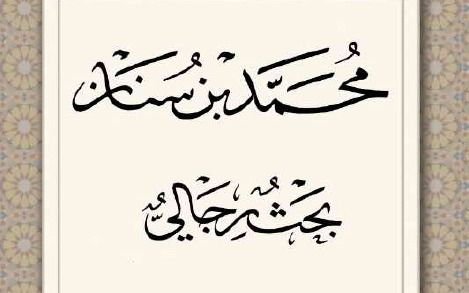 مُحَمَّد بْن سُنَان
بَحْثٌ رِجَالِيٌّ